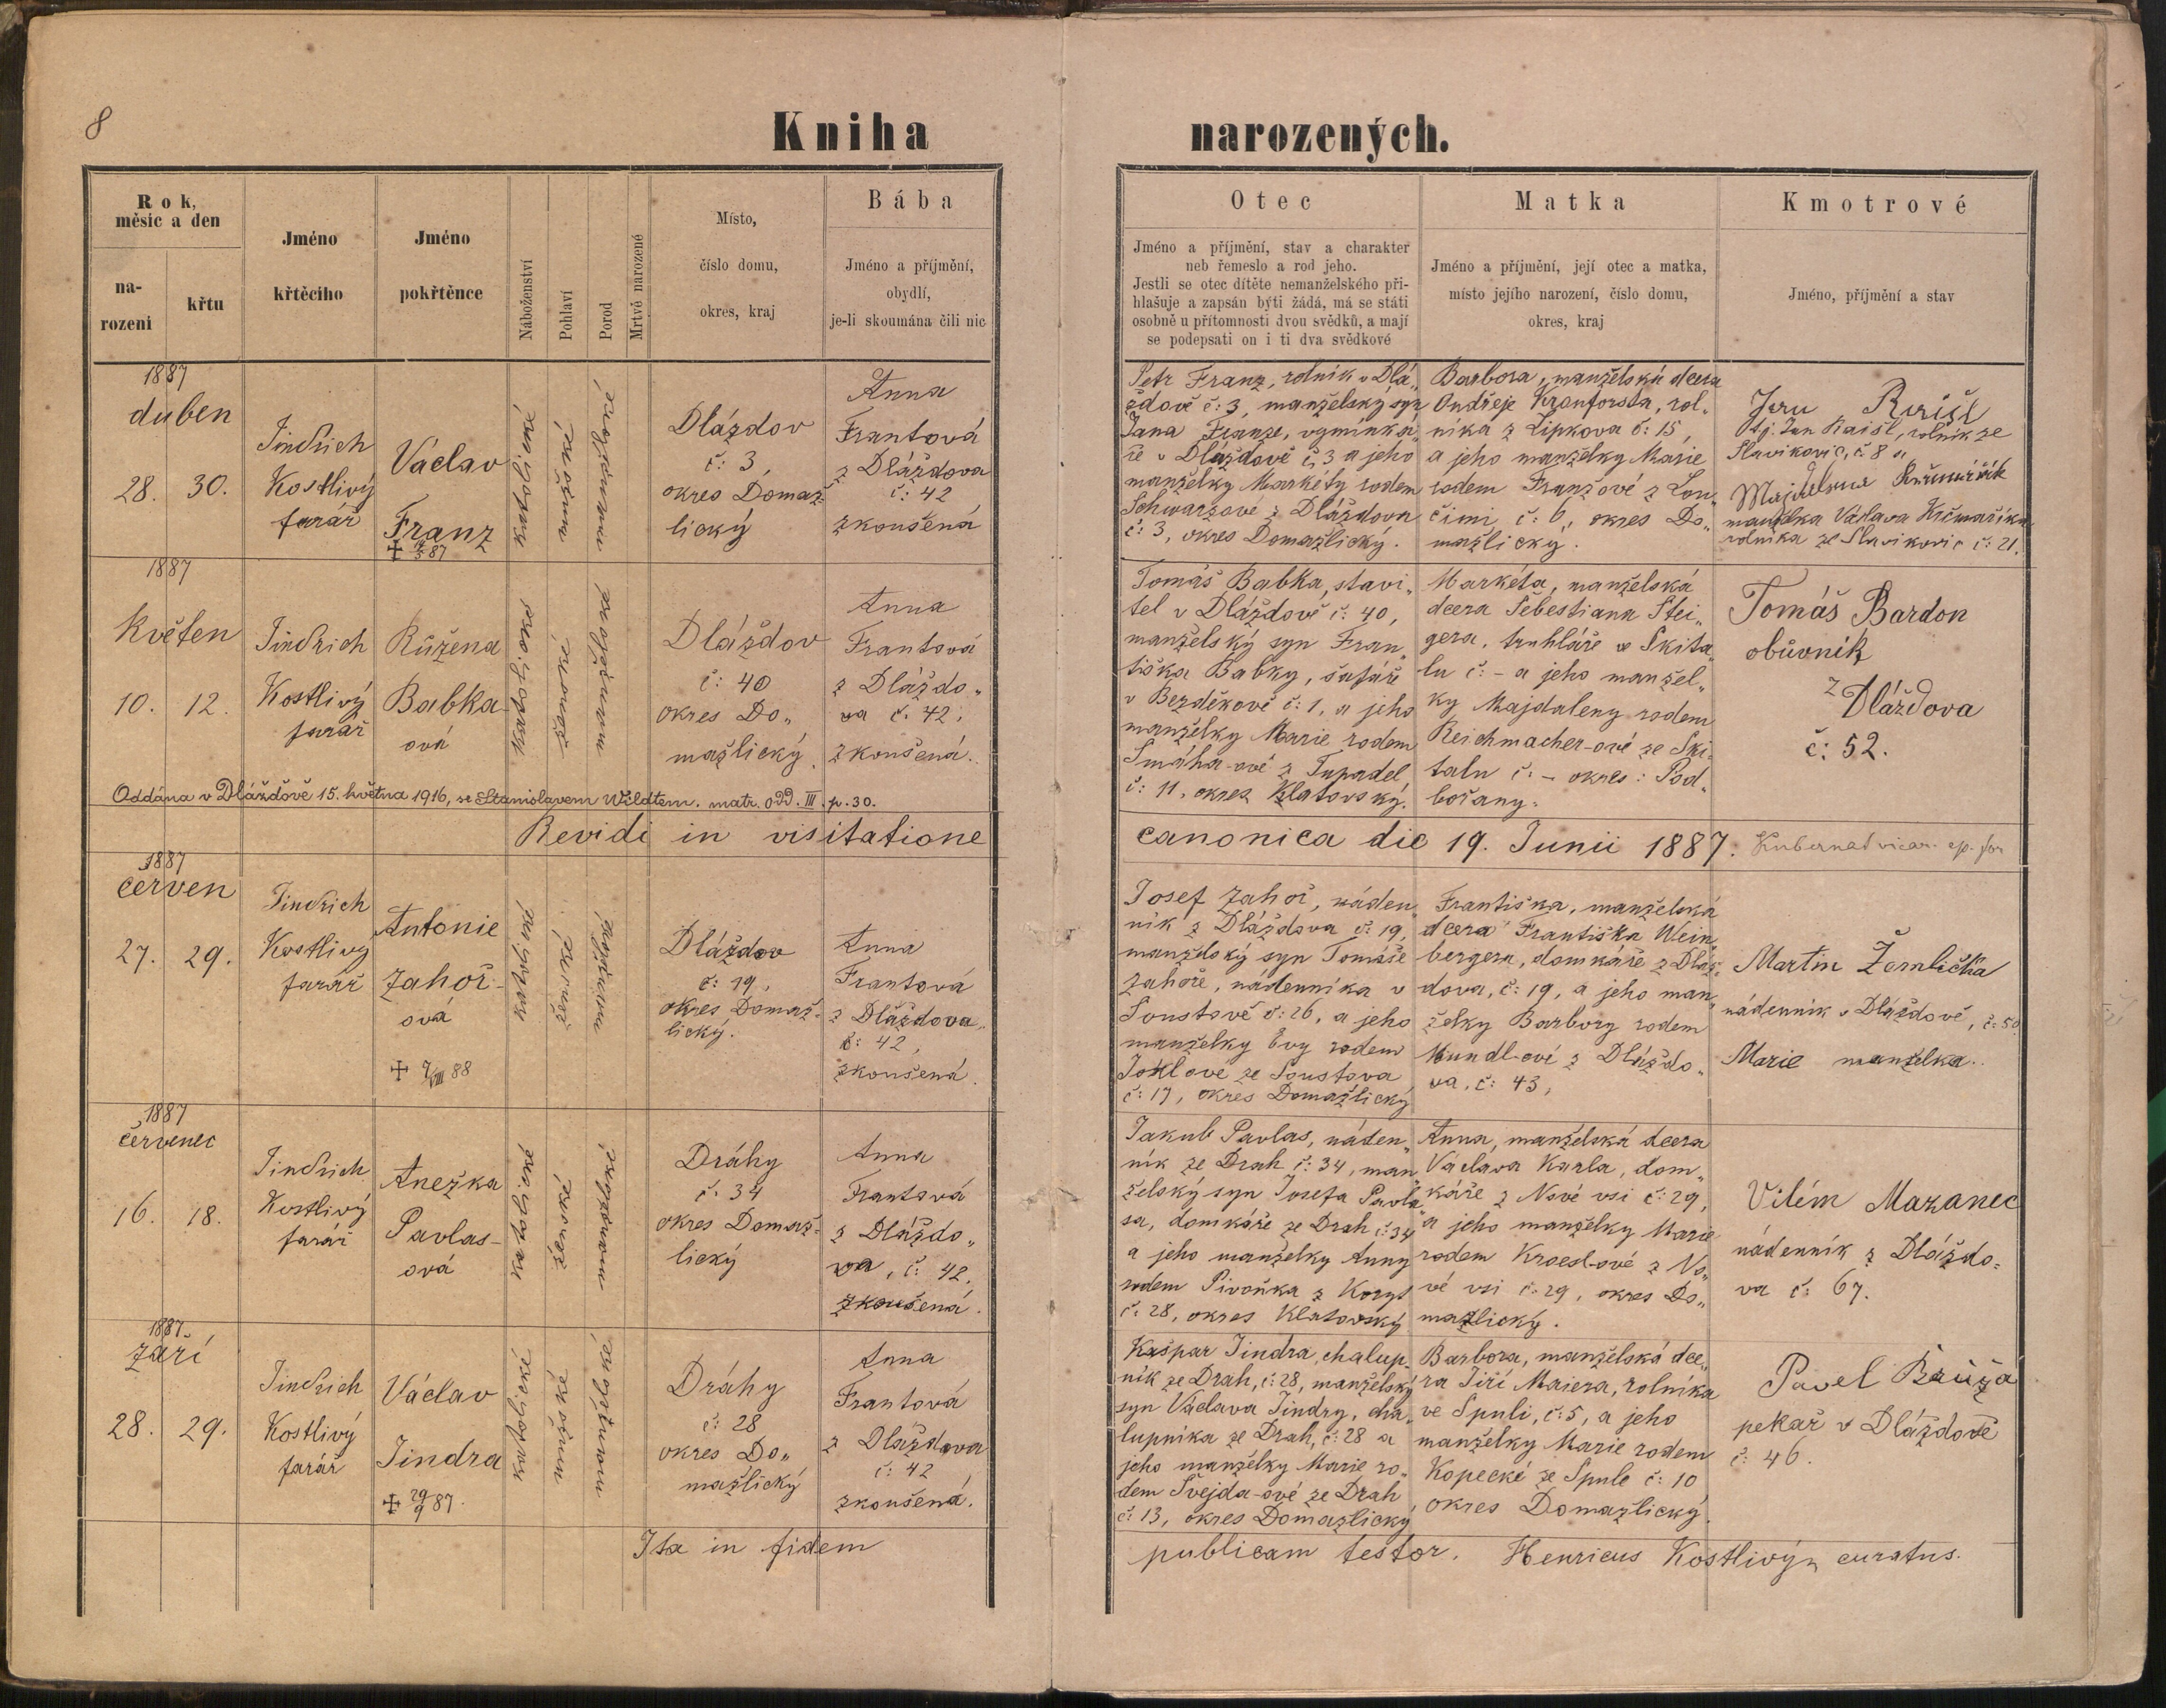 8
Kniha narozených.
Rok,
měsíc a den
na-
rození
křtu
Jméno
křtěcího
Jméno
pokřtěnce
Náboženství
Pohlaví
Porod
Mrtvě narozené
Místo,
číslo domu,
okres, kraj
Bába
Jméno a příjmění,
obydlí,
je-li skoumána čili nic
Otec
Jméno a příjmění, stav a charakter
neb řemeslo a rod jeho.
Jestli se otec dítěte nemanželského při-
hlašuje a zapsán býti žádá, má se státi
osobně u přítomnosti dvou svědků, a mají
se podepsati on i ti dva svědkové
Matka
Jméno a příjmění, její otec a matka,
místo jejího narození, číslo domu,
okres, kraj
Kmotrové
Jméno, příjmění a stav
1887
duben
28. 30.
Jindřich
Kostlivý
farář
Václav
Franz
katolické
mužské
manželské
Dláždov
č: 3,
okres Domaž-
lický
Anna
Frantová
z Dláždova
č: 42
zkoušená
Petr Franz, rolník v Dlá„
ždově č: 3, manželský syn
Jana Franze, výminká„
ře v Dláždově č, 3 a jeho
manželky Markéty rodem
Schwarzové z Dláždova
č: 3, okres Domažlický.
Barbora, manželská dcera
Ondřeje Kronforsta, rol„
níka z Lipkova č: 15,
a jeho manželky Marie
rodem Franzové z Lou„
čimi, č: 6, okres Do„
mažlický.
Jan Raišl
tj. Jan Raisl, rolník ze
Slavikovic, č. 8 a
manželka Václava Krčmaříka
rolníka ze Slavikovic č: 21.
1887
Květen
10. 12.
Jindřich
Kostlivý
farář
Růžena
Babka-
ová
katolické
ženské
manželské
Dláždov
č: 40
okres Do„
mažlický.
Anna
Frantová
z Dláždo„
va č. 42,
zkoušená.
Tomáš Babka, stavi„
tel v Dláždově č: 40,
manželský syn Fran„
tiška Babky, šafáře
v Bezděkově č: 1, a jeho
manželky Marie rodem
Smáha-ové z Tupadel
č: 11, okres Klatovský.
Markéta, manželská
dcera Šebestiana Stei„
gera, truhláře ve Skita„
lu č: - a jeho manžel„
ky Majdaleny rodem
Reichmacher-ové ze Ski-
talu č: - okres: Pod„
bořany.
Tomáš Bardon
obůvník
z Dláždova
č: 52.
Oddána v Dláždově 15. května 1916, se Stanislavem Wildtem. matr. odd. III. p. 30.
Revidi in visitatione canonica die 19. Junii 1887.
1887
červen
27. 29.
Jindřich
Kostlivý
farář
Antonie
Zahoř-
ová
+ 7/VIII 88
katolické
ženské
manželské
Dláždov
č: 19,
okres Domaž-
lický.
Anna
Frantová
z Dláždova
č: 42,
zkoušená.
Josef Zahoř, náden„
ník z Dláždova č: 19,
manželský syn Tomáše
Zahoře, nádenníka v
Soustově č: 26, a jeho
manželky Evy rodem
Joklové ze Soustova
č: 17, okres Domažlický
Františka, manželská
dcera Františka Wein„
bergera, domkáře z Dláž„
dova, č: 19, a jeho man„
želky Barbory rodem
Mundl-ové z Dláždo„
va, č: 43,
Martin Žemlička
nádenník v Dláždově, č: 50
Marie manželka.
1887
červenec
16. 18.
Jindřich
Kostlivý
farář
Anežka
Pavlas-
ová
katolické
ženské
manželské
Dráhy
č: 34
okres Domaž-
lický
Anna
Frantová
z Dláždo„
va, č: 42,
zkoušená.
Jakub Pavlas, náden„
ník ze Drah č: 34, man„
želský syn Josefa Pavla„
sa, domkáře ze Drah č: 34
a jeho manželky Anny
rodem Pivoňka z Koryt
č: 28, okres Klatovský
Anna, manželská dcera
Václava Karla, dom„
káře z Nové vsi č: 29,
a jeho manželky Marie
rodem Kroesl-ové z No„
vé vsi č: 29, okres Do„
mažlický.
Vilém Mazanec
nádenník z Dláždo„
va č: 67.
1887.
Září
28. 29.
Jindřich
Kostlivý
farář
Václav
Jindra
+ 29/9 87.
katolické
mužské
manželské
Dráhy
č: 28
okres Do„
mažlický
Anna
Frantová
z Dláždova
č: 42,
zkoušená.
Kašpar Jindra, chalup-
ník ze Drah, č: 28, manželský
syn Václava Jindry, cha„
lupníka ze Drah, č: 28 a
jeho manželky Marie ro„
dem Švejda-ové ze Drah
č: 13, okres Domažlický
Barbora, manželská dce„
ra Jiří Maiera, rolníka
ve Spuli, č: 5, a jeho
manželky Marie rodem
Kopecké ze Spule č: 10
okres Domažlický.
Pavel Brůža
pekař v Dláždově
č: 46.
Ita in fidem publicam testor. Henricus Kostlivý, curatus.